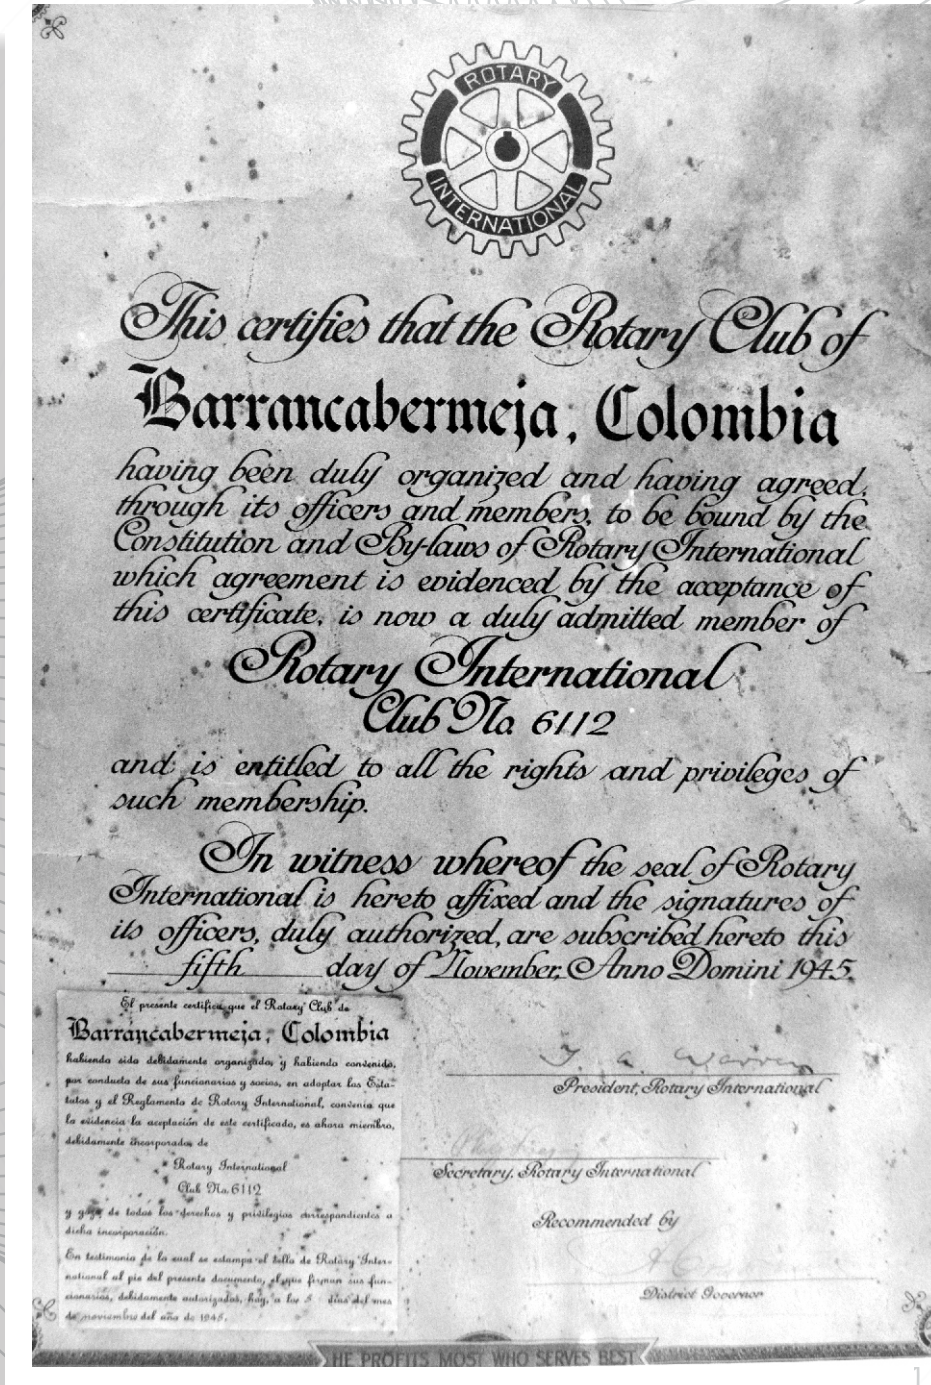 ROTARY
INTERNATIONAL
This certifies that the Rotary Club of
Barrancabermeja, Colombia
having been duly organized and having agreed,
through its officers and members, to be bound by the
Constitution and By-laws of Rotary International
which agreement is evidenced by the acceptance of
this certificate, is now a duly admitted member of
Rotary International
Club No. 6112
and is entitled to all the rights and privileges of
such membership.
In witness whereof the seal of Rotary
International is hereto affixed and the signatures of
its officers, duly authorized, are subscribed hereto this
fifth day of November, Anno Domini 1945.
El presente certifica que el Rotary Club de
Barrancabermeja, Colombia
habiendo sido debidamente organizado, y habiendo convenido,
por conducto de sus funcionarios y socios, en adoptar los Esta-
tutos y el Reglamento de Rotary International, convenio que
la evidencia la aceptación de este certificado, es ahora miembro,
debidamente incorporado de
Rotary International
Club No. 6112
y goza de todos los derechos y privilegios correspondientes a
dicha incorporación.
En testimonio de lo cual se estampa el sello de Rotary Inter-
national al pie del presente documento, el que firman sus fun-
cionarios, debidamente autorizados, hoy, a los 5 días del mes
de noviembre del año de 1945.
T. A. Warren
President, Rotary International
Secretary, Rotary International
Recommended by
District Governor
HE PROFITS MOST WHO SERVES BEST
1